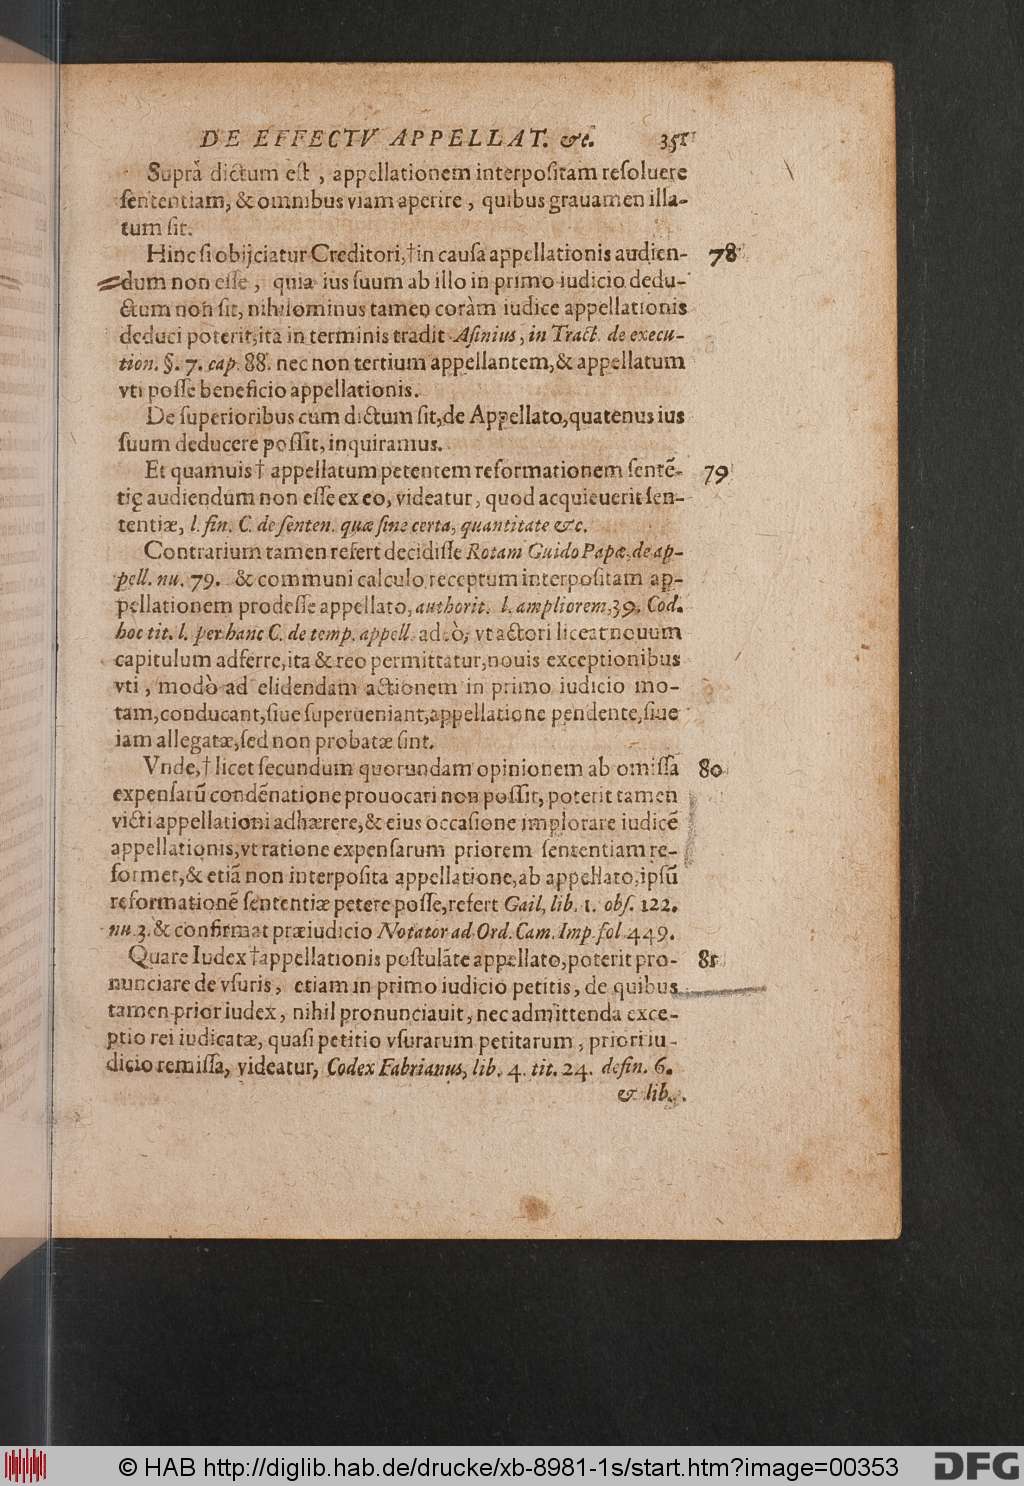 DE EFFECTV APPELLAT. &c. 351
Suprà dictum eſt, appellationem interpoſitam reſoluere
ſententiam, & omnibus viam aperire, quibus grauamen illa-
tum ſit.
Hinc ſi obijciatur Creditori, † in cauſa appellationis audien- 78
dum non eſſe, quia ius ſuum ab illo in primo iudicio dedu-
ctum non ſit, nihilominus tamen coràm iudice appellationis
deduci poterit, ita in terminis tradit Aſinius, in Tract. de execu-
tion. §. 7. cap. 88. nec non tertium appellantem, & appellatum
vti poſſe beneficio appellationis.
De ſuperioribus cum dictum ſit, de Appellato, quatenus ius
ſuum deducere poſſit, inquiramus.
Et quamuis † appellatum petentem reformationem ſentẽ- 79
tię audiendum non eſſe ex eo, videatur, quod acquieuerit ſen-
tentiæ, l. fin. C. de ſenten. quæ ſine certa, quantitate &c.
Contrarium tamen refert decidiſſe Rotam Guido Papæ, de ap-
pell. nu. 79. & communi calculo receptum interpoſitam ap-
pellationem prodeſſe appellato, authorit. l. ampliorem, 39. Cod.
hoc tit. l. per hanc C. de temp. appell. ad.ò, vt actori liceat nouum
capitulum adferre, ita & reo permittatur, nouis exceptionibus
vti, modò ad elidendam actionem in primo iudicio mo-
tam, conducant, ſiue ſuperueniant, appellatione pendente, ſiue
iam allegatæ, ſed non probatæ ſint.
Vnde, † licet ſecundum quorundam opinionem ab omiſſa 80
expenſarũ condẽnatione prouocari non poſſit, poterit tamen
victi appellationi adhærere, & eius occaſione implorare iudicẽ
appellationis, vt ratione expenſarum priorem ſententiam re-
formet, & etiã non interpoſita appellatione, ab appellato, ipſũ
reformationẽ ſententiæ petere poſſe, refert Gail, lib. 1. obſ. 122.
nu 3. & confirmat præiudicio Notator ad Ord. Cam. Imp. fol 449.
Quare Iudex † appellationis poſtulãte appellato, poterit pro- 81
nunciare de vſuris, etiam in primo iudicio petitis, de quibus
tamen prior iudex, nihil pronunciauit, nec admittenda exce-
ptio rei iudicatæ, quaſi petitio vſurarum petitarum, priori iu-
dicio remiſſa, videatur, Codex Fabrianus, lib. 4. tit. 24. defin. 6.
& lib.
© HAB http://diglib.hab.de/drucke/xb-8981-1s/start.htm?image=00353
DFG